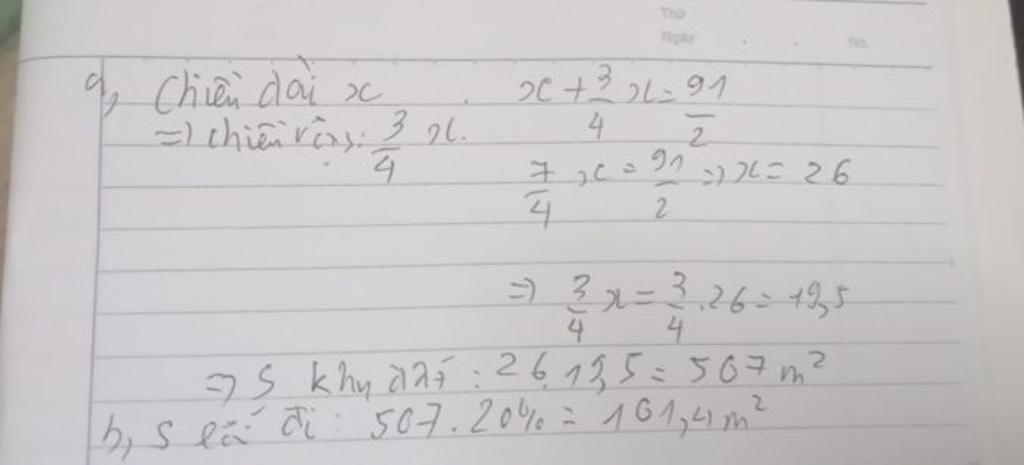 Thứ
Ngày . . No.
a, Chiều dài x . x + 3/4 x = 91/2
=> chiều rộng: 3/4 x.
7/4 x = 91/2 => x = 26
=> 3/4 x = 3/4 . 26 = 19,5
=> S khu đất : 26.19,5 = 507 m²
b, S lối đi : 507 . 20% = 101,4 m²